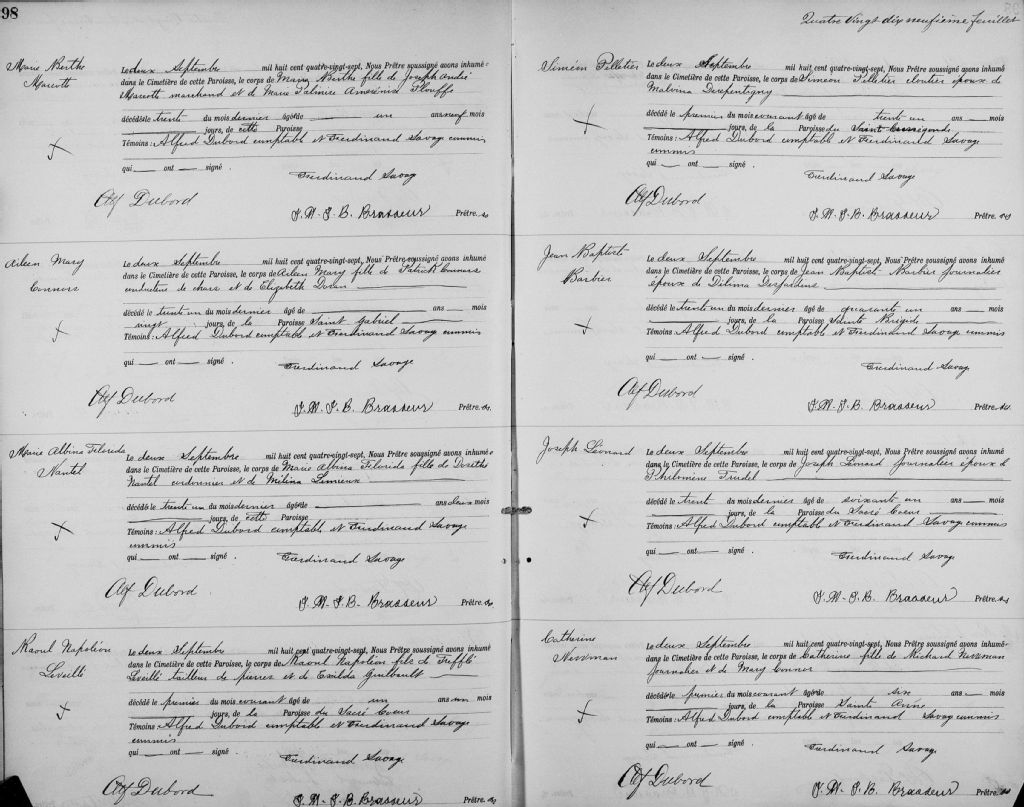 98
Marie Berthe
Marcotte
Le deux Septembre mil huit cent quatre-vingt-sept, Nous Prêtre soussigné avons inhumé
dans le Cimetière de cette Paroisse, le corps de Marie Berthe fille de Joseph André
Marcotte marchand et de Marie Palmire Plouffe
décédé le trente du mois dernier âgé de un ans neuf mois
jours, de cette Paroisse
Témoins : Alfred Dubord comptable et Ferdinand Savage commis
qui ont signé.
Ferdinand Savage
Alf Dubord
J. M. J. B. Brasseur Prêtre.
Aileen Mary
Connors
Le deux Septembre mil huit cent quatre-vingt-sept, Nous Prêtre soussigné avons inhumé
dans le Cimetière de cette Paroisse, le corps de Aileen Mary fille de Patrick Connors
conducteur de chars et de Elizabeth Doran
décédé le trente un du mois dernier âgé de ans mois
vingt jours, de la Paroisse Saint Gabriel
Témoins : Alfred Dubord comptable et Ferdinand Savage commis
qui ont signé.
Ferdinand Savage
Alf Dubord
J. M. J. B. Brasseur Prêtre.
Marie Albina Florida
Nantel
Le deux Septembre mil huit cent quatre-vingt-sept, Nous Prêtre soussigné avons inhumé
dans le Cimetière de cette Paroisse, le corps de Marie Albina Florida fille de Dosithe
Nantel cordonnier et de Mélina Lemieux
décédé le trente un du mois dernier âgé de ans deux mois
jours, de cette Paroisse
Témoins : Alfred Dubord comptable et Ferdinand Savage
commis
qui ont signé.
Ferdinand Savage
Alf Dubord
J. M. J. B. Brasseur Prêtre.
Raoul Napoléon
Leveillé
Le deux Septembre mil huit cent quatre-vingt-sept, Nous Prêtre soussigné avons inhumé
dans le Cimetière de cette Paroisse, le corps de Raoul Napoléon fils de Trefflé
Leveillé tailleur de pierres et de Exilda Guilbault
décédé le premier du mois courant âgé de un ans un mois
jours, de la Paroisse du Sacré Coeur
Témoins : Alfred Dubord comptable et Ferdinand Savage
commis
qui ont signé.
Ferdinand Savage
Alf Dubord
J. M. J. B. Brasseur Prêtre.
Quatre vingt dix neufieme feuillet
Siméon Pelletier
Le deux Septembre mil huit cent quatre-vingt-sept, Nous Prêtre soussigné avons inhumé
dans le Cimetière de cette Paroisse, le corps de Siméon Pelletier cloutier époux de
Malvina Derepentigny
décédé le premier du mois courant âgé de trente un ans mois
jours, de la Paroisse du Saint Cunégonde
Témoins : Alfred Dubord comptable et Ferdinand Savage
commis
qui ont signé.
Ferdinand Savage
Alf Dubord
J. M. J. B. Brasseur Prêtre.
Jean Baptiste
Barbier
Le deux Septembre mil huit cent quatre-vingt-sept, Nous Prêtre soussigné avons inhumé
dans le Cimetière de cette Paroisse, le corps de Jean Baptiste Barbier journalier
époux de Délima Desjardins
décédé le trente un du mois dernier âgé de quarante un ans mois
jours, de la Paroisse Sainte Brigide
Témoins : Alfred Dubord comptable et Ferdinand Savage commis
qui ont signé.
Ferdinand Savage
Alf Dubord
J. M. J. B. Brasseur Prêtre.
Joseph Léonard
Le deux Septembre mil huit cent quatre-vingt-sept, Nous Prêtre soussigné avons inhumé
dans le Cimetière de cette Paroisse, le corps de Joseph Léonard journalier époux de
Philomène Trudel
décédé le trente du mois dernier âgé de soixante un ans mois
jours, de la Paroisse du Sacré Coeur
Témoins : Alfred Dubord comptable et Ferdinand Savage commis
qui ont signé.
Ferdinand Savage
Alf Dubord
J. M. J. B. Brasseur Prêtre.
Catherine
Newman
Le deux Septembre mil huit cent quatre-vingt-sept, Nous Prêtre soussigné avons inhumé
dans le Cimetière de cette Paroisse, le corps de Catherine fille de Richard Newman
journalier et de Mary Connor
décédé le premier du mois courant âgé de six ans mois
jours, de la Paroisse Sainte Anne
Témoins : Alfred Dubord comptable et Ferdinand Savage commis
qui ont signé.
Ferdinand Savage
Alf Dubord
J. M. J. B. Brasseur Prêtre.